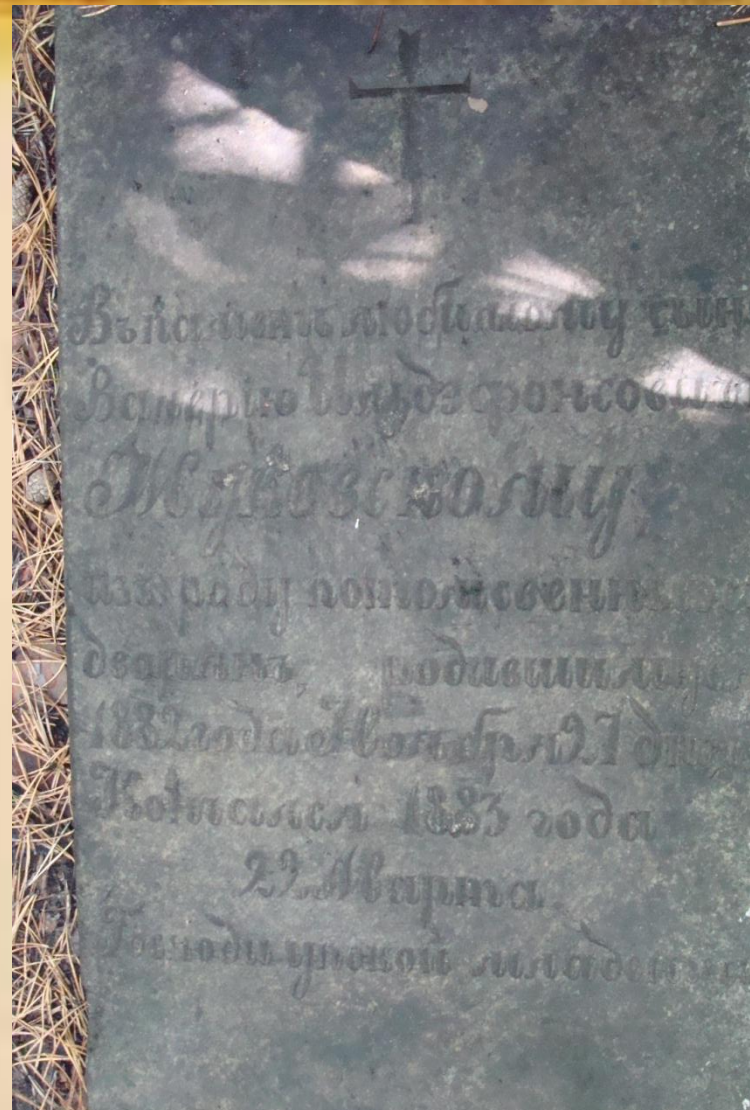 Въ память любимому сын
Валерію Ильдефонсович
Жуковскому
изъ роду потомственных
дворянъ, родившимуся
1882 года Ноября 27 дня
Кончался 1883 года
22 Марта
Господи упокой младенца